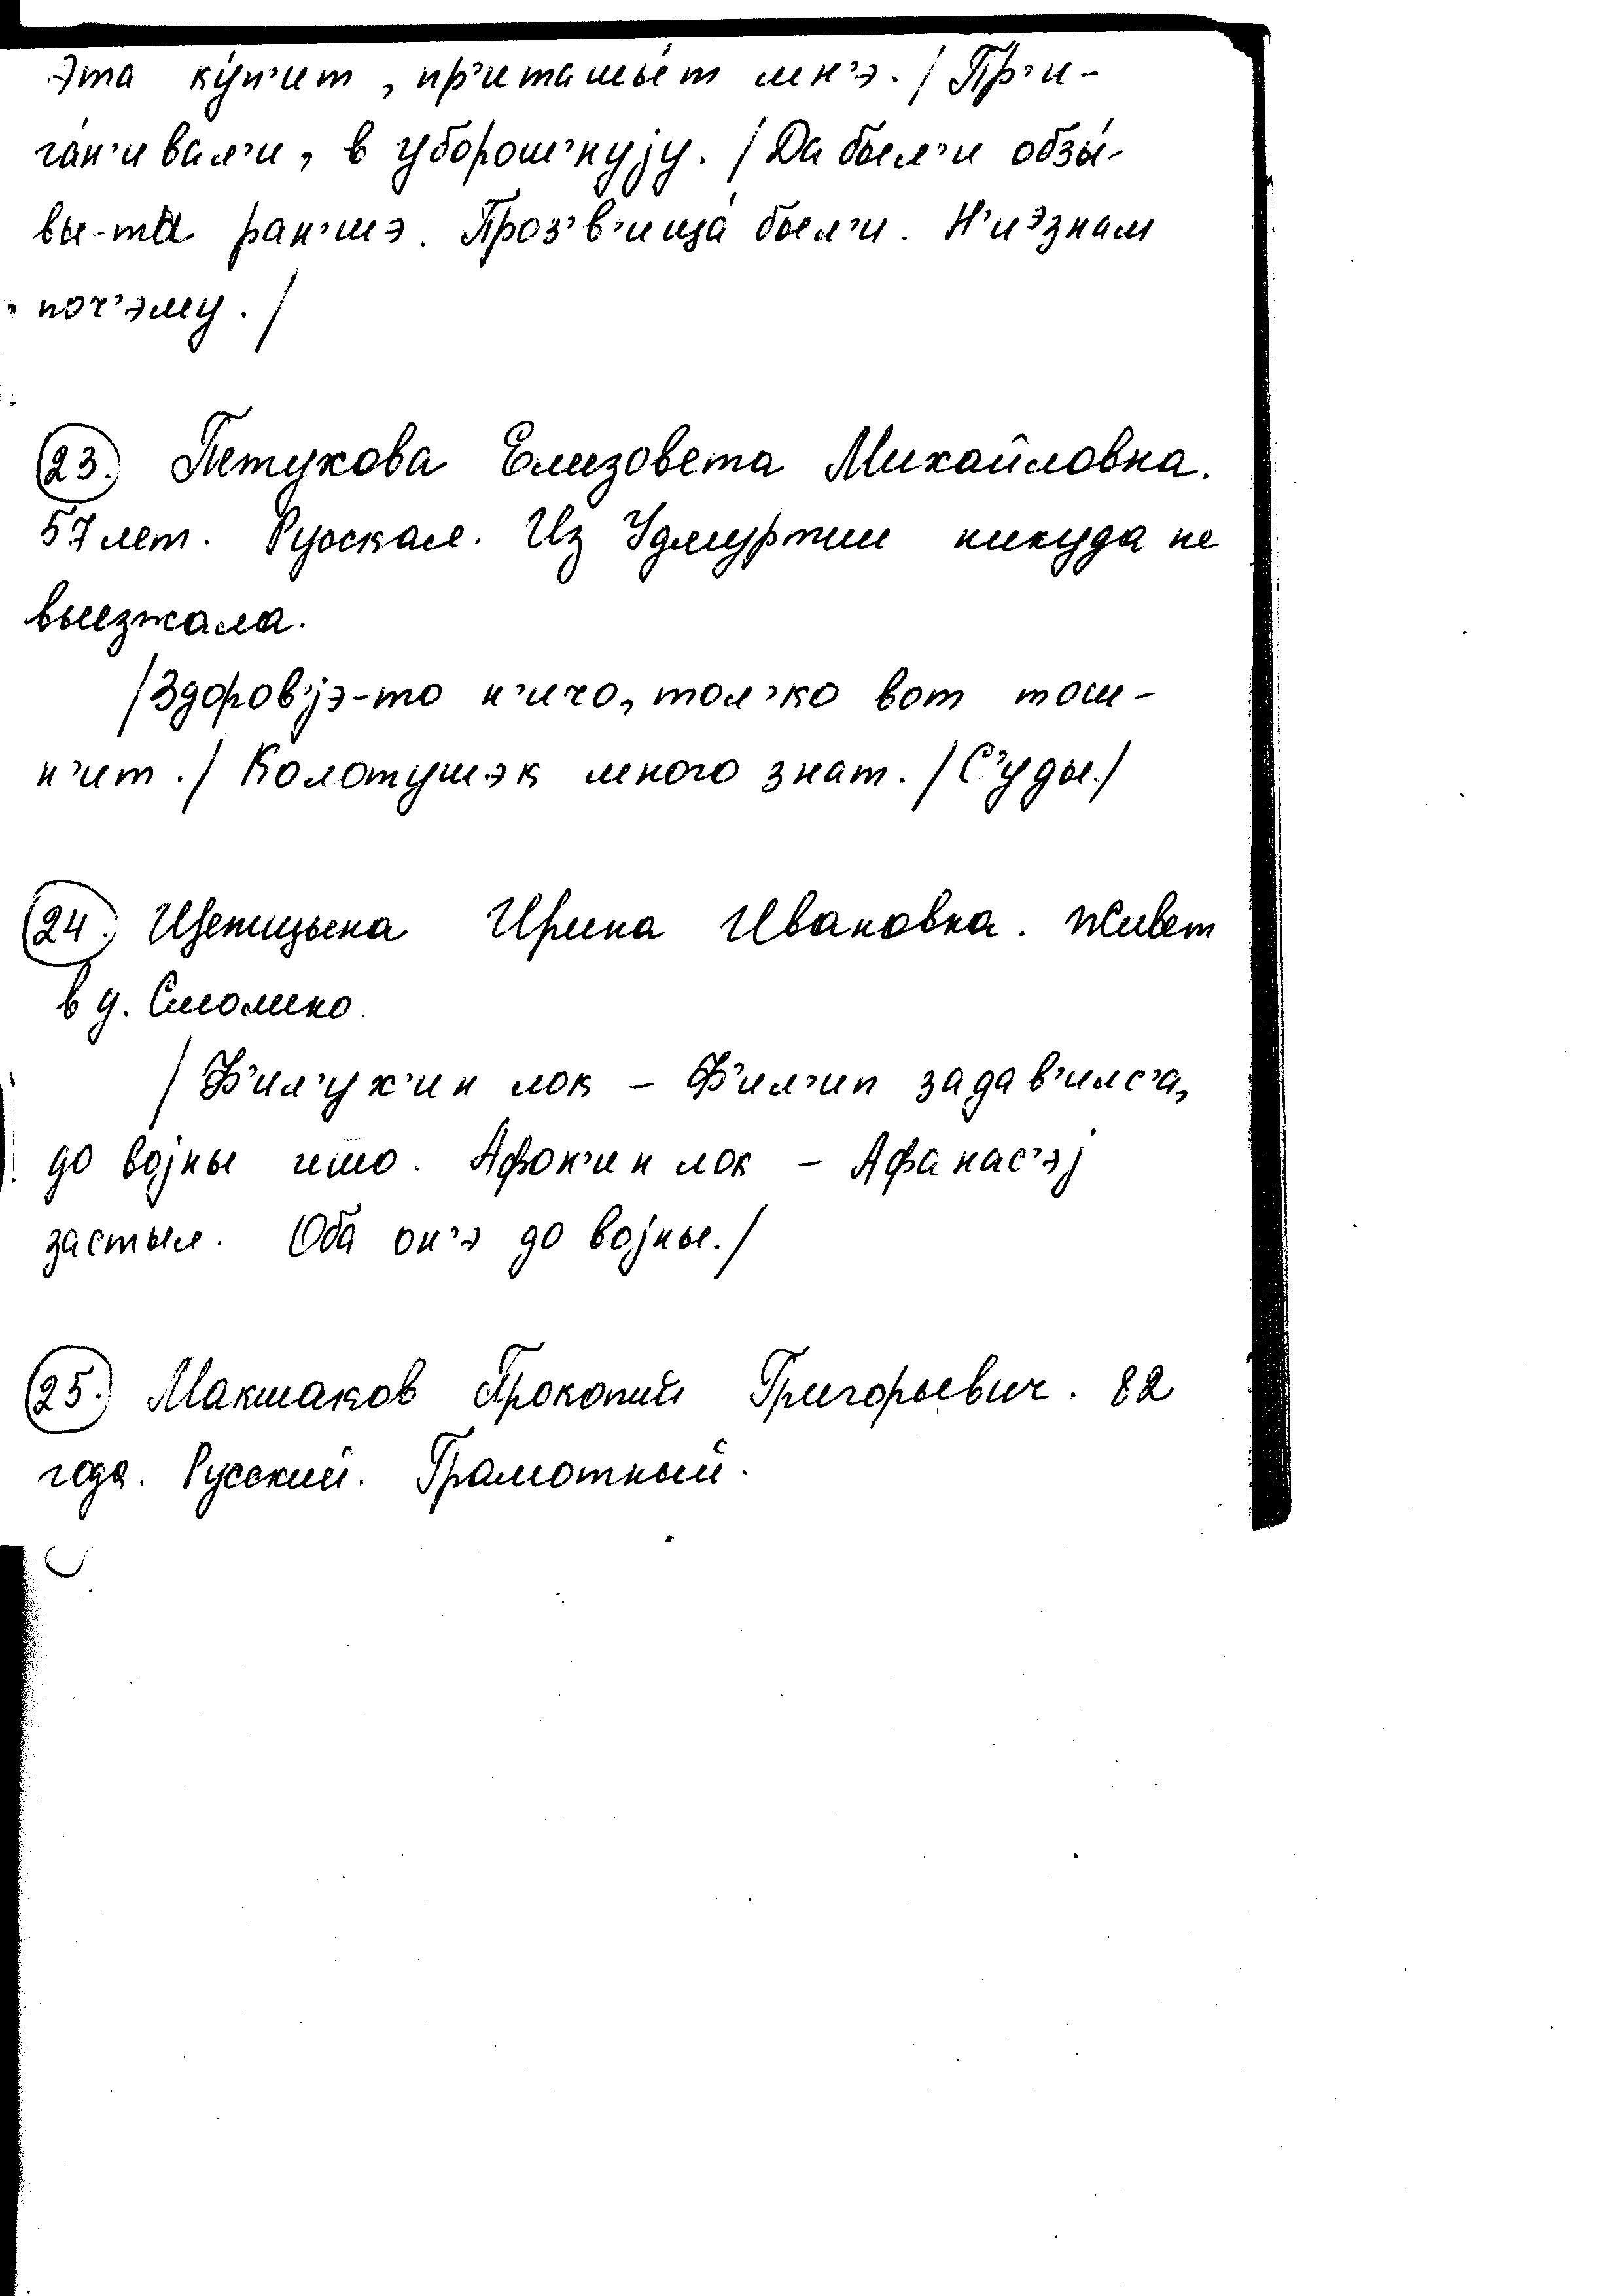 Эта ку́п'ит, пр'иташшы́т мн'э. / Пр'и-
га́н'ивал'и, в уборош'нуjу. / Да был'и обзы́-
вы-та ран'шэ. Проз'в'ища́ был'и. Н'иэзнам
поч'эму. /
23. Петухова Елизовета Михайловна.
57 лет. Русская. Из Удмуртии никуда не
выезжала.
/Здоров'jэ-то н'ичо, тол'ко вот тош-
н'ит. / Колотушэк много знат. / С'уды. /
24. Щепицына Ирина Ивановна. Живет
в д. Смолино.
/ Ф'ил'ух'ин лок – Ф'ил'ип задав'илс'а,
до воjны ишо. Афон'ин лок – Афанас'эj
застыл. Оба он'э до воjны. /
25. Макшаков Прокопий Григорьевич. 82
года. Русский. Грамотный.